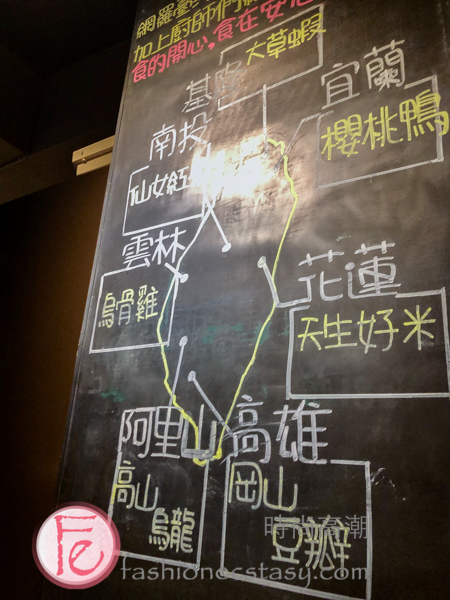 網羅
加上廚師們
食的開心,食在安心
基隆
大草蝦
宜蘭
櫻桃鴨
南投
仙女紅
雲林
烏骨雞
花蓮
天生好米
阿里山
高山
烏龍
高雄
岡山
豆瓣
時尚高潮
Fe
fashionecstasy.com